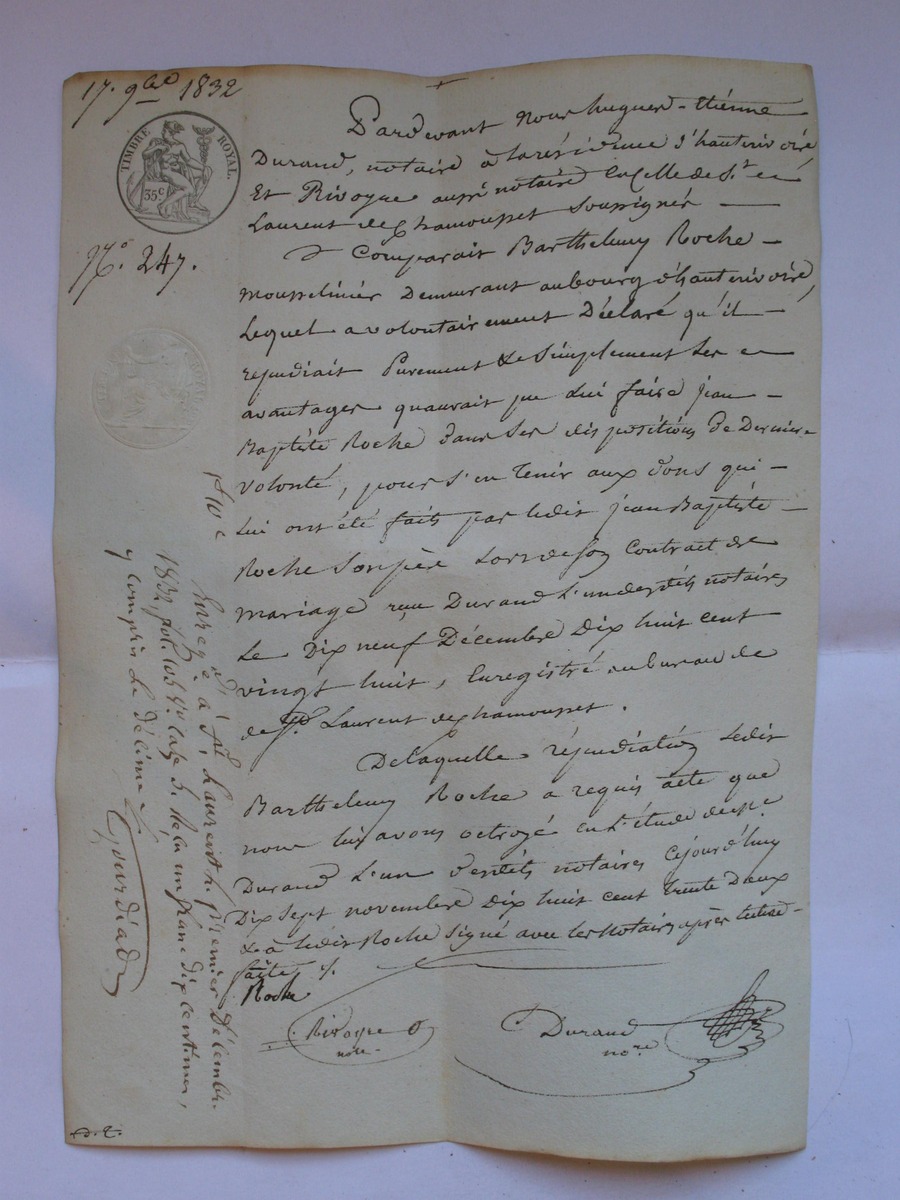 17. 9bre 1832
TIMBRE ROYAL.
35 c
No. 247.
Pardevant Nous hugues-Etienne
Durand, notaire à la résidence d'hauterivoire
Et Rivoque aussi notaire En Celle de St.
Laurent de Chamousset soussignés —
Comparait Barthelemy Roche —
mousselinier Demeurant au bourg d'hauterivoire,
Lequel a volontairement Déclaré qu'il —
repudiait Purement & Simplement Les
avantages quaurait pu Lui faire jean —
Baptiste Roche dans Ses dispositions De Derniere
Volonté, pour s'en Tenir aux dons qui —
Lui ont été faits par ledit jean Baptiste —
Roche Son père Lors de Son Contract de
mariage reçu Durand L'un desdits notaires
Le Dix neuf Décembre Dix huit cent
vingt huit, Enregistré au bureau de
de St. Laurent de Chamousset.
De laquelle répudiation Ledit
Barthelemy Roche a requis acte que
nous lui avons octroyé en L'étude de Me
Durand L'un desdits notaires Cejourd'huy
Dix Sept novembre Dix huit cent trente Deux
& a Ledit Roche Signé avec les Notaires après lecture —
faite ./.
Roche
Rivoque
notre
Durand
nore
1f 10 c
Enregé à St. Laurent le premier Décembre
1832, fol. 105 Vo Case 5. Reçu un franc dix centimes,
y compris le décime
Gourdiat
D. L.